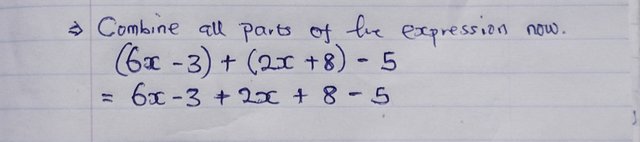 ⇒ Combine all parts of the expression now.
(6x - 3) + (2x + 8) - 5
= 6x - 3 + 2x + 8 - 5